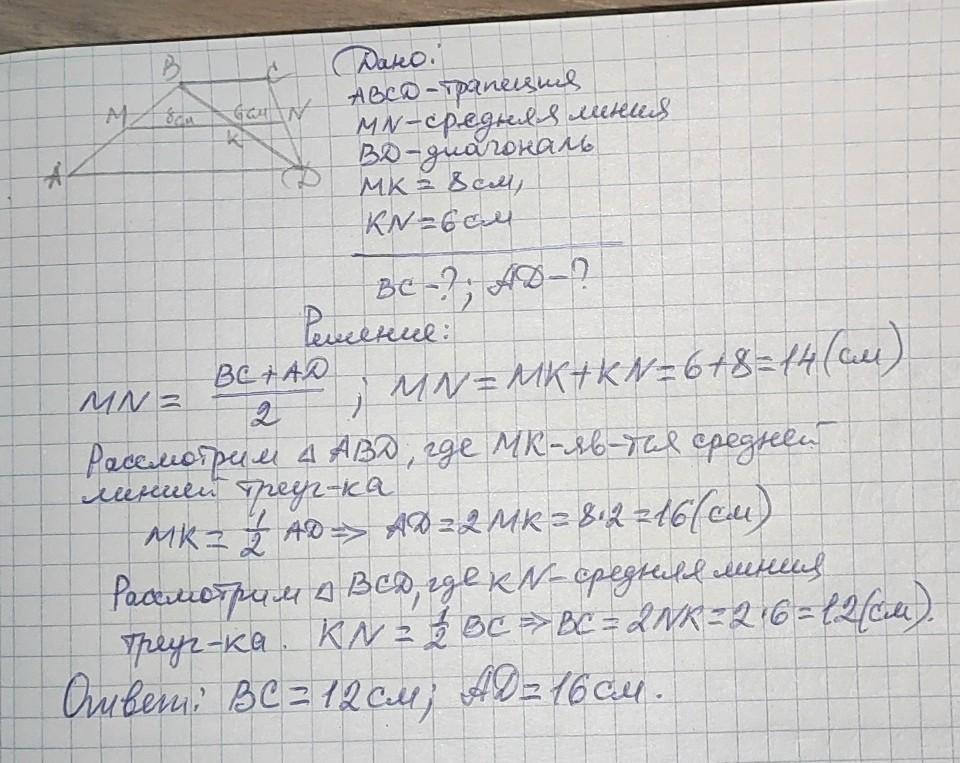 B C
M 8см 6см N
K
A D
Дано:
ABCD-трапеция
MN-средняя линия
BD-диагональ
MK = 8см,
KN=6см
BC-?; AD-?
Решение:
MN = BC+AD/2 ; MN = MK+KN=6+8=14(см)
Рассмотрим △ ABD, где MK-яв-тся средней
линией треуг-ка
MK = 1/2 AD ⇒ AD = 2MK = 8·2 = 16(см)
Рассмотрим △ BCD, где KN-средняя линия
треуг-ка. KN = 1/2 BC ⇒ BC = 2NK = 2·6 = 12(см).
Ответ: BC = 12см; AD = 16см.